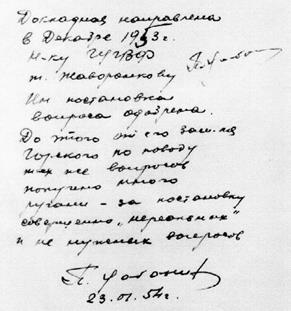 Докладная направлена
в Декабре 1953 г.
Н-ку ГУГВФ
т. Жаворонкову
Им постановка
вопроса одобрена.
До этого от его зам-ля
Горского по поводу
тех же вопросов
получено много
ругани - за постановку
совершенно „нереальных“
и не нужных вопросов
23.01.54 г.